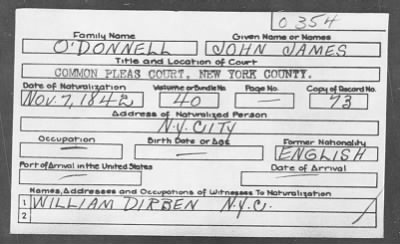 O 354
Family Name Given Name or Names
O'DONNELL JOHN JAMES
Title and Location of Court
COMMON PLEAS COURT, NEW YORK COUNTY.
Date of Naturalization Volume or Bundle No. Page No. Copy of Record No.
Nov. 7, 1842 40 — 73
Address of Naturalized Person
N.Y. CITY
Occupation Birth Date or Age Former Nationality
— — ENGLISH
Port of Arrival in the United States Date of Arrival
— —
Names, Addresses and Occupations of Witnesses To Naturalization
1 WILLIAM DIRBEN N.Y.C.
2